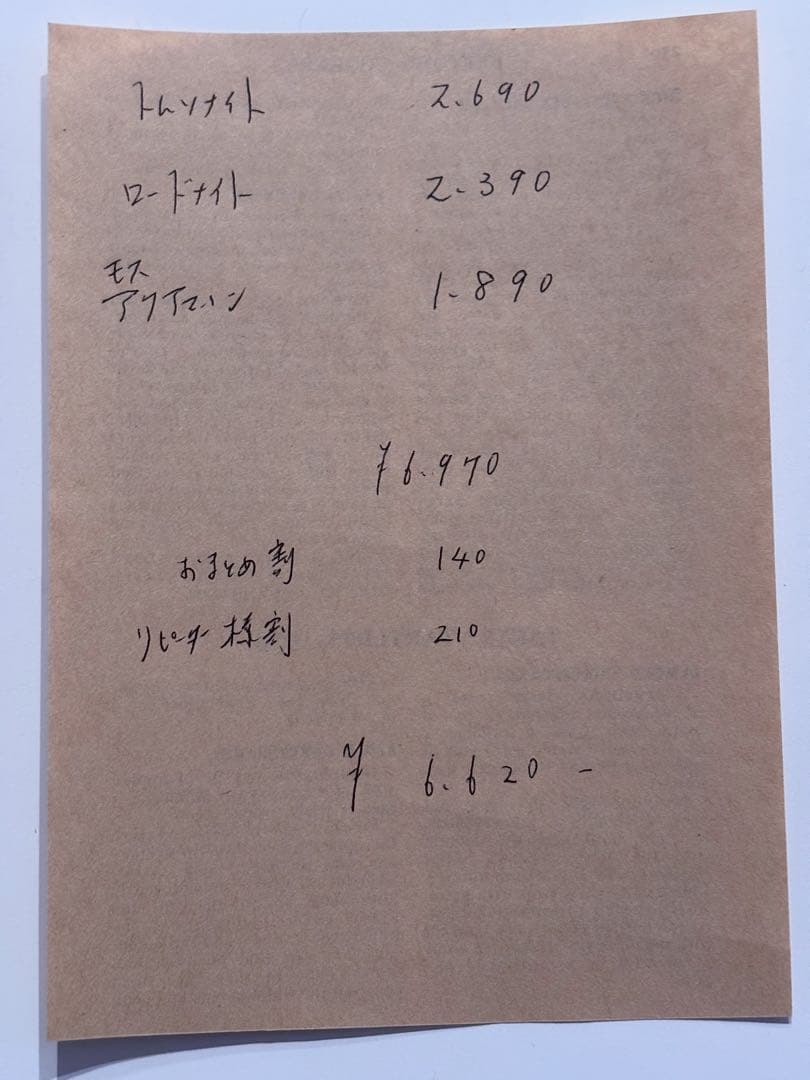 トムソナイト 2.690
ロードナイト 2.390
モス
アクアマリン 1.890
¥6.970
おまとめ割 140
リピーター様割 210
¥ 6.620-